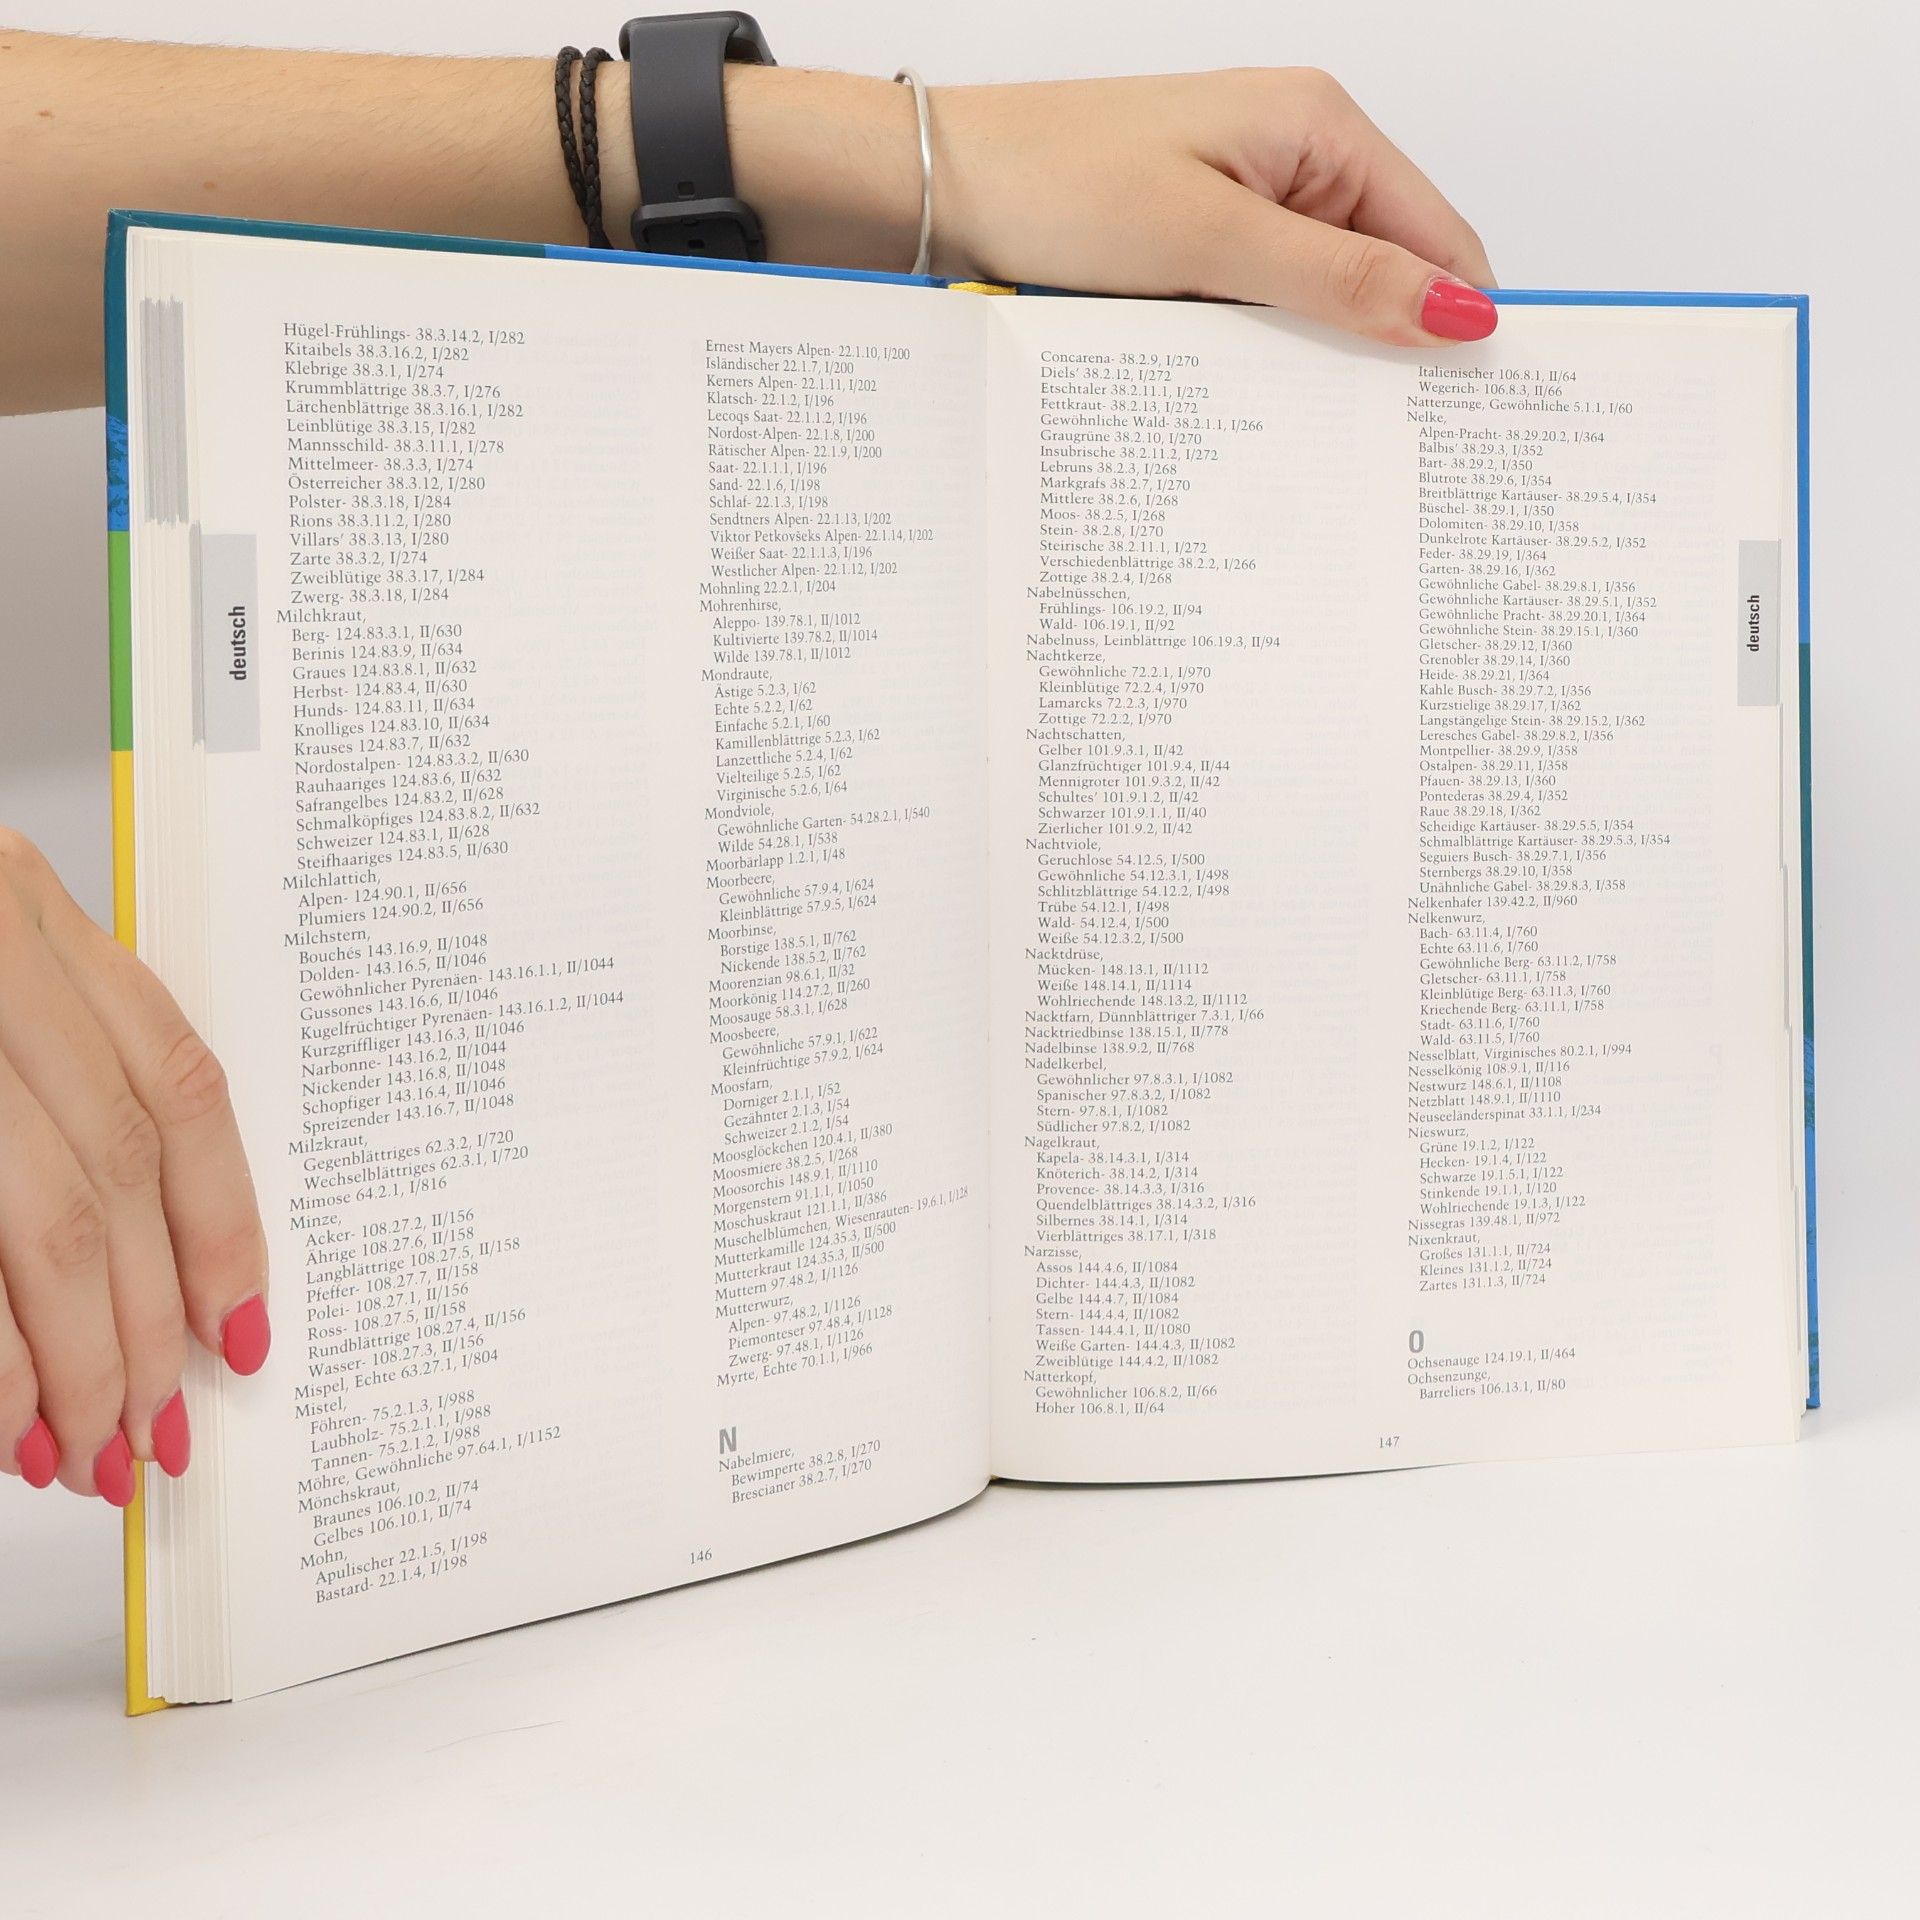 Hügel-Frühlings- 38.3.14.2, I/282
Kitaibels 38.3.16.2, I/282
Klebrige 38.3.1, I/274
Krummblättrige 38.3.7, I/276
Lärchenblättrige 38.3.16.1, I/282
Leinblütige 38.3.15, I/282
Mannsschild- 38.3.11.1, I/278
Mittelmeer- 38.3.3, I/274
Österreicher 38.3.12, I/280
Polster- 38.3.18, I/284
Rions 38.3.11.2, I/280
Villars' 38.3.13, I/280
Zarte 38.3.2, I/274
Zweiblütige 38.3.17, I/284
Zwerg- 38.3.18, I/284
Milchkraut,
Berg- 124.83.3.1, II/630
Berinis 124.83.9, II/634
Graues 124.83.8.1, II/632
Herbst- 124.83.4, II/630
Hunds- 124.83.11, II/634
Knolliges 124.83.10, II/634
Krauses 124.83.7, II/632
Nordostalpen- 124.83.3.2, II/630
Rauhaariges 124.83.6, II/632
Safrangelbes 124.83.2, II/628
Schmalköpfiges 124.83.8.2, II/632
Schweizer 124.83.1, II/628
Steifhaariges 124.83.5, II/630
Milchlattich,
Alpen- 124.90.1, II/656
Plumiers 124.90.2, II/656
Milchstern,
Bouchés 143.16.9, II/1048
Dolden- 143.16.5, II/1046
Gewöhnlicher Pyrenäen- 143.16.1.1, II/1044
Gussones 143.16.6, II/1046
Kugelfrüchtiger Pyrenäen- 143.16.1.2, II/1044
Kurzgriffliger 143.16.3, II/1046
Narbonne- 143.16.2, II/1044
Nickender 143.16.8, II/1048
Schopfiger 143.16.4, II/1046
Spreizender 143.16.7, II/1048
Milzkraut,
Gegenblättriges 62.3.2, I/720
Wechselblättriges 62.3.1, I/720
Mimose 64.2.1, I/816
Minze,
Acker- 108.27.2, II/156
Ährige 108.27.6, II/158
Langblättrige 108.27.5, II/158
Pfeffer- 108.27.7, II/158
Polei- 108.27.1, II/156
Ross- 108.27.5, II/158
Rundblättrige 108.27.4, II/156
Wasser- 108.27.3, II/156
Mispel, Echte 63.27.1, I/804
Mistel,
Föhren- 75.2.1.3, I/988
Laubholz- 75.2.1.1, I/988
Tannen- 75.2.1.2, I/988
Möhre, Gewöhnliche 97.64.1, I/1152
Mönchskraut,
Braunes 106.10.2, II/74
Gelbes 106.10.1, II/74
Mohn,
Apulischer 22.1.5, I/198
Bastard- 22.1.4, I/198
deutsch
Ernest Mayers Alpen- 22.1.10, I/200
Isländischer 22.1.7, I/200
Kerners Alpen- 22.1.11, I/202
Klatsch- 22.1.2, I/196
Lecoqs Saat- 22.1.1.2, I/196
Nordost-Alpen- 22.1.8, I/200
Rätischer Alpen- 22.1.9, I/200
Saat- 22.1.1.1, I/196
Sand- 22.1.6, I/198
Schlaf- 22.1.3, I/198
Sendtners Alpen- 22.1.13, I/202
Viktor Petkovšeks Alpen- 22.1.14, I/202
Weißer Saat- 22.1.1.3, I/196
Westlicher Alpen- 22.1.12, I/202
Mohnling 22.2.1, I/204
Mohrenhirse,
Aleppo- 139.78.1, II/1012
Kultivierte 139.78.2, II/1014
Wilde 139.78.1, II/1012
Mondraute,
Ästige 5.2.3, I/62
Echte 5.2.2, I/62
Einfache 5.2.1, I/60
Kamillenblättrige 5.2.3, I/62
Lanzettliche 5.2.4, I/62
Vielteilige 5.2.5, I/62
Virginische 5.2.6, I/64
Mondviole,
Gewöhnliche Garten- 54.28.2.1, I/540
Wilde 54.28.1, I/538
Moorbärlapp 1.2.1, I/48
Moorbeere,
Gewöhnliche 57.9.4, I/624
Kleinblättrige 57.9.5, I/624
Moorbinse,
Borstige 138.5.1, II/762
Nickende 138.5.2, II/762
Moorenzian 98.6.1, II/32
Moorkönig 114.27.2, II/260
Moosauge 58.3.1, I/628
Moosbeere,
Gewöhnliche 57.9.1, I/622
Kleinfrüchtige 57.9.2, I/624
Moosfarn,
Dorniger 2.1.1, I/52
Gezähnter 2.1.3, I/54
Schweizer 2.1.2, I/54
Moosglöckchen 120.4.1, II/380
Moosmiere 38.2.5, I/268
Moosorchis 148.9.1, II/1110
Morgenstern 91.1.1, I/1050
Moschuskraut 121.1.1, II/386
Muschelblümchen, Wiesenrauten- 19.6.1, I/128
Mutterkamille 124.35.3, II/500
Mutterkraut 124.35.3, II/500
Muttern 97.48.2, I/1126
Mutterwurz,
Alpen- 97.48.2, I/1126
Piemonteser 97.48.4, I/1128
Zwerg- 97.48.1, I/1126
Myrte, Echte 70.1.1, I/966
N
Nabelmiere,
Bewimperte 38.2.8, I/270
Brescianer 38.2.7, I/270
146
Concarena- 38.2.9, I/270
Diels' 38.2.12, I/272
Etschtaler 38.2.11.1, I/272
Fettkraut- 38.2.13, I/272
Gewöhnliche Wald- 38.2.1.1, I/266
Graugrüne 38.2.10, I/270
Insubrische 38.2.11.2, I/272
Lebruns 38.2.3, I/268
Markgrafs 38.2.7, I/270
Mittlere 38.2.6, I/268
Moos- 38.2.5, I/268
Stein- 38.2.8, I/270
Steirische 38.2.11.1, I/272
Verschiedenblättrige 38.2.2, I/266
Zottige 38.2.4, I/268
Nabelnüsschen,
Frühlings- 106.19.2, II/94
Wald- 106.19.1, II/92
Nabelnuss, Leinblättrige 106.19.3, II/94
Nachtkerze,
Gewöhnliche 72.2.1, I/970
Kleinblütige 72.2.4, I/970
Lamarcks 72.2.3, I/970
Zottige 72.2.2, I/970
Nachtschatten,
Gelber 101.9.3.1, II/42
Glanzfrüchtiger 101.9.4, II/44
Mennigroter 101.9.3.2, II/42
Schultes' 101.9.1.2, II/42
Schwarzer 101.9.1.1, II/40
Zierlicher 101.9.2, II/42
Nachtviole,
Geruchlose 54.12.5, I/500
Gewöhnliche 54.12.3.1, I/498
Schlitzblättrige 54.12.2, I/498
Trübe 54.12.1, I/498
Wald- 54.12.4, I/500
Weiße 54.12.3.2, I/500
Nacktdrüse,
Mücken- 148.13.1, II/1112
Weiße 148.14.1, II/1114
Wohlriechende 148.13.2, II/1112
Nacktfarn, Dünnblättriger 7.3.1, I/66
Nacktriedbinse 138.15.1, II/778
Nadelbinse 138.9.2, II/768
Nadelkerbel,
Gewöhnlicher 97.8.3.1, I/1082
Spanischer 97.8.3.2, I/1082
Stern- 97.8.1, I/1082
Südlicher 97.8.2, I/1082
Nagelkraut,
Kapela- 38.14.3.1, I/314
Knöterich- 38.14.2, I/314
Provence- 38.14.3.3, I/316
Quendelblättriges 38.14.3.2, I/316
Silbernes 38.14.1, I/314
Vierblättriges 38.17.1, I/318
Narzisse,
Assos 144.4.6, II/1084
Dichter- 144.4.3, II/1082
Gelbe 144.4.7, II/1084
Stern- 144.4.4, II/1082
Tassen- 144.4.1, II/1080
Weiße Garten- 144.4.3, II/1082
Zweiblütige 144.4.2, II/1082
Natterkopf,
Gewöhnlicher 106.8.2, II/66
Hoher 106.8.1, II/64
Italienischer 106.8.1, II/64
Wegerich- 106.8.3, II/66
Natterzunge, Gewöhnliche 5.1.1, I/60
Nelke,
Alpen-Pracht- 38.29.20.2, I/364
Balbis' 38.29.3, I/352
Bart- 38.29.2, I/350
Blutrote 38.29.6, I/354
Breitblättrige Kartäuser- 38.29.5.4, I/354
Büschel- 38.29.1, I/350
Dolomiten- 38.29.10, I/358
Dunkelrote Kartäuser- 38.29.5.2, I/352
Feder- 38.29.19, I/364
Garten- 38.29.16, I/362
Gewöhnliche Gabel- 38.29.8.1, I/356
Gewöhnliche Kartäuser- 38.29.5.1, I/352
Gewöhnliche Pracht- 38.29.20.1, I/364
Gewöhnliche Stein- 38.29.15.1, I/360
Gletscher- 38.29.12, I/360
Grenobler 38.29.14, I/360
Heide- 38.29.21, I/364
Kahle Busch- 38.29.7.2, I/356
Kurzstielige 38.29.17, I/362
Langstängelige Stein- 38.29.15.2, I/362
Leresches Gabel- 38.29.8.2, I/356
Montpellier- 38.29.9, I/358
Ostalpen- 38.29.11, I/358
Pfauen- 38.29.13, I/360
Pontederas 38.29.4, I/352
Raue 38.29.18, I/362
Scheidige Kartäuser- 38.29.5.5, I/354
Schmalblättrige Kartäuser- 38.29.5.3, I/354
Seguiers Busch- 38.29.7.1, I/356
Sternbergs 38.29.10, I/358
Unähnliche Gabel- 38.29.8.3, I/358
Nelkenhafer 139.42.2, II/960
Nelkenwurz,
Bach- 63.11.4, I/760
Echte 63.11.6, I/760
Gewöhnliche Berg- 63.11.2, I/758
Gletscher- 63.11.1, I/758
Kleinblütige Berg- 63.11.3, I/760
Kriechende Berg- 63.11.1, I/758
Stadt- 63.11.6, I/760
Wald- 63.11.5, I/760
Nesselblatt, Virginisches 80.2.1, I/994
Nesselkönig 108.9.1, II/116
Nestwurz 148.6.1, II/1108
Netzblatt 148.9.1, II/1110
Neuseeländerspinat 33.1.1, I/234
Nieswurz,
Grüne 19.1.2, I/122
Hecken- 19.1.4, I/122
Schwarze 19.1.5.1, I/122
Stinkende 19.1.1, I/120
Wohlriechende 19.1.3, I/122
Nissegras 139.48.1, II/972
Nixenkraut,
Großes 131.1.1, II/724
Kleines 131.1.2, II/724
Zartes 131.1.3, II/724
O
Ochsenauge 124.19.1, II/464
Ochsenzunge,
Barreliers 106.13.1, II/80
deutsch
147